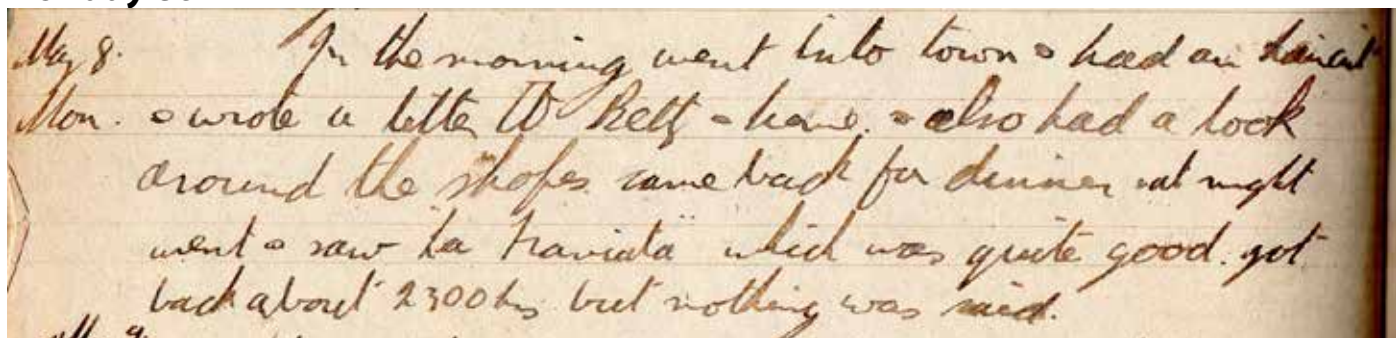 May 8. In the morning went into town & had an haircut
Mon. & wrote a letter to Betty & home. & also had a look
around the shopes came back for dinner at night
went & saw La Traviata which was quite good. got
back about 2300 hrs but nothing was said.